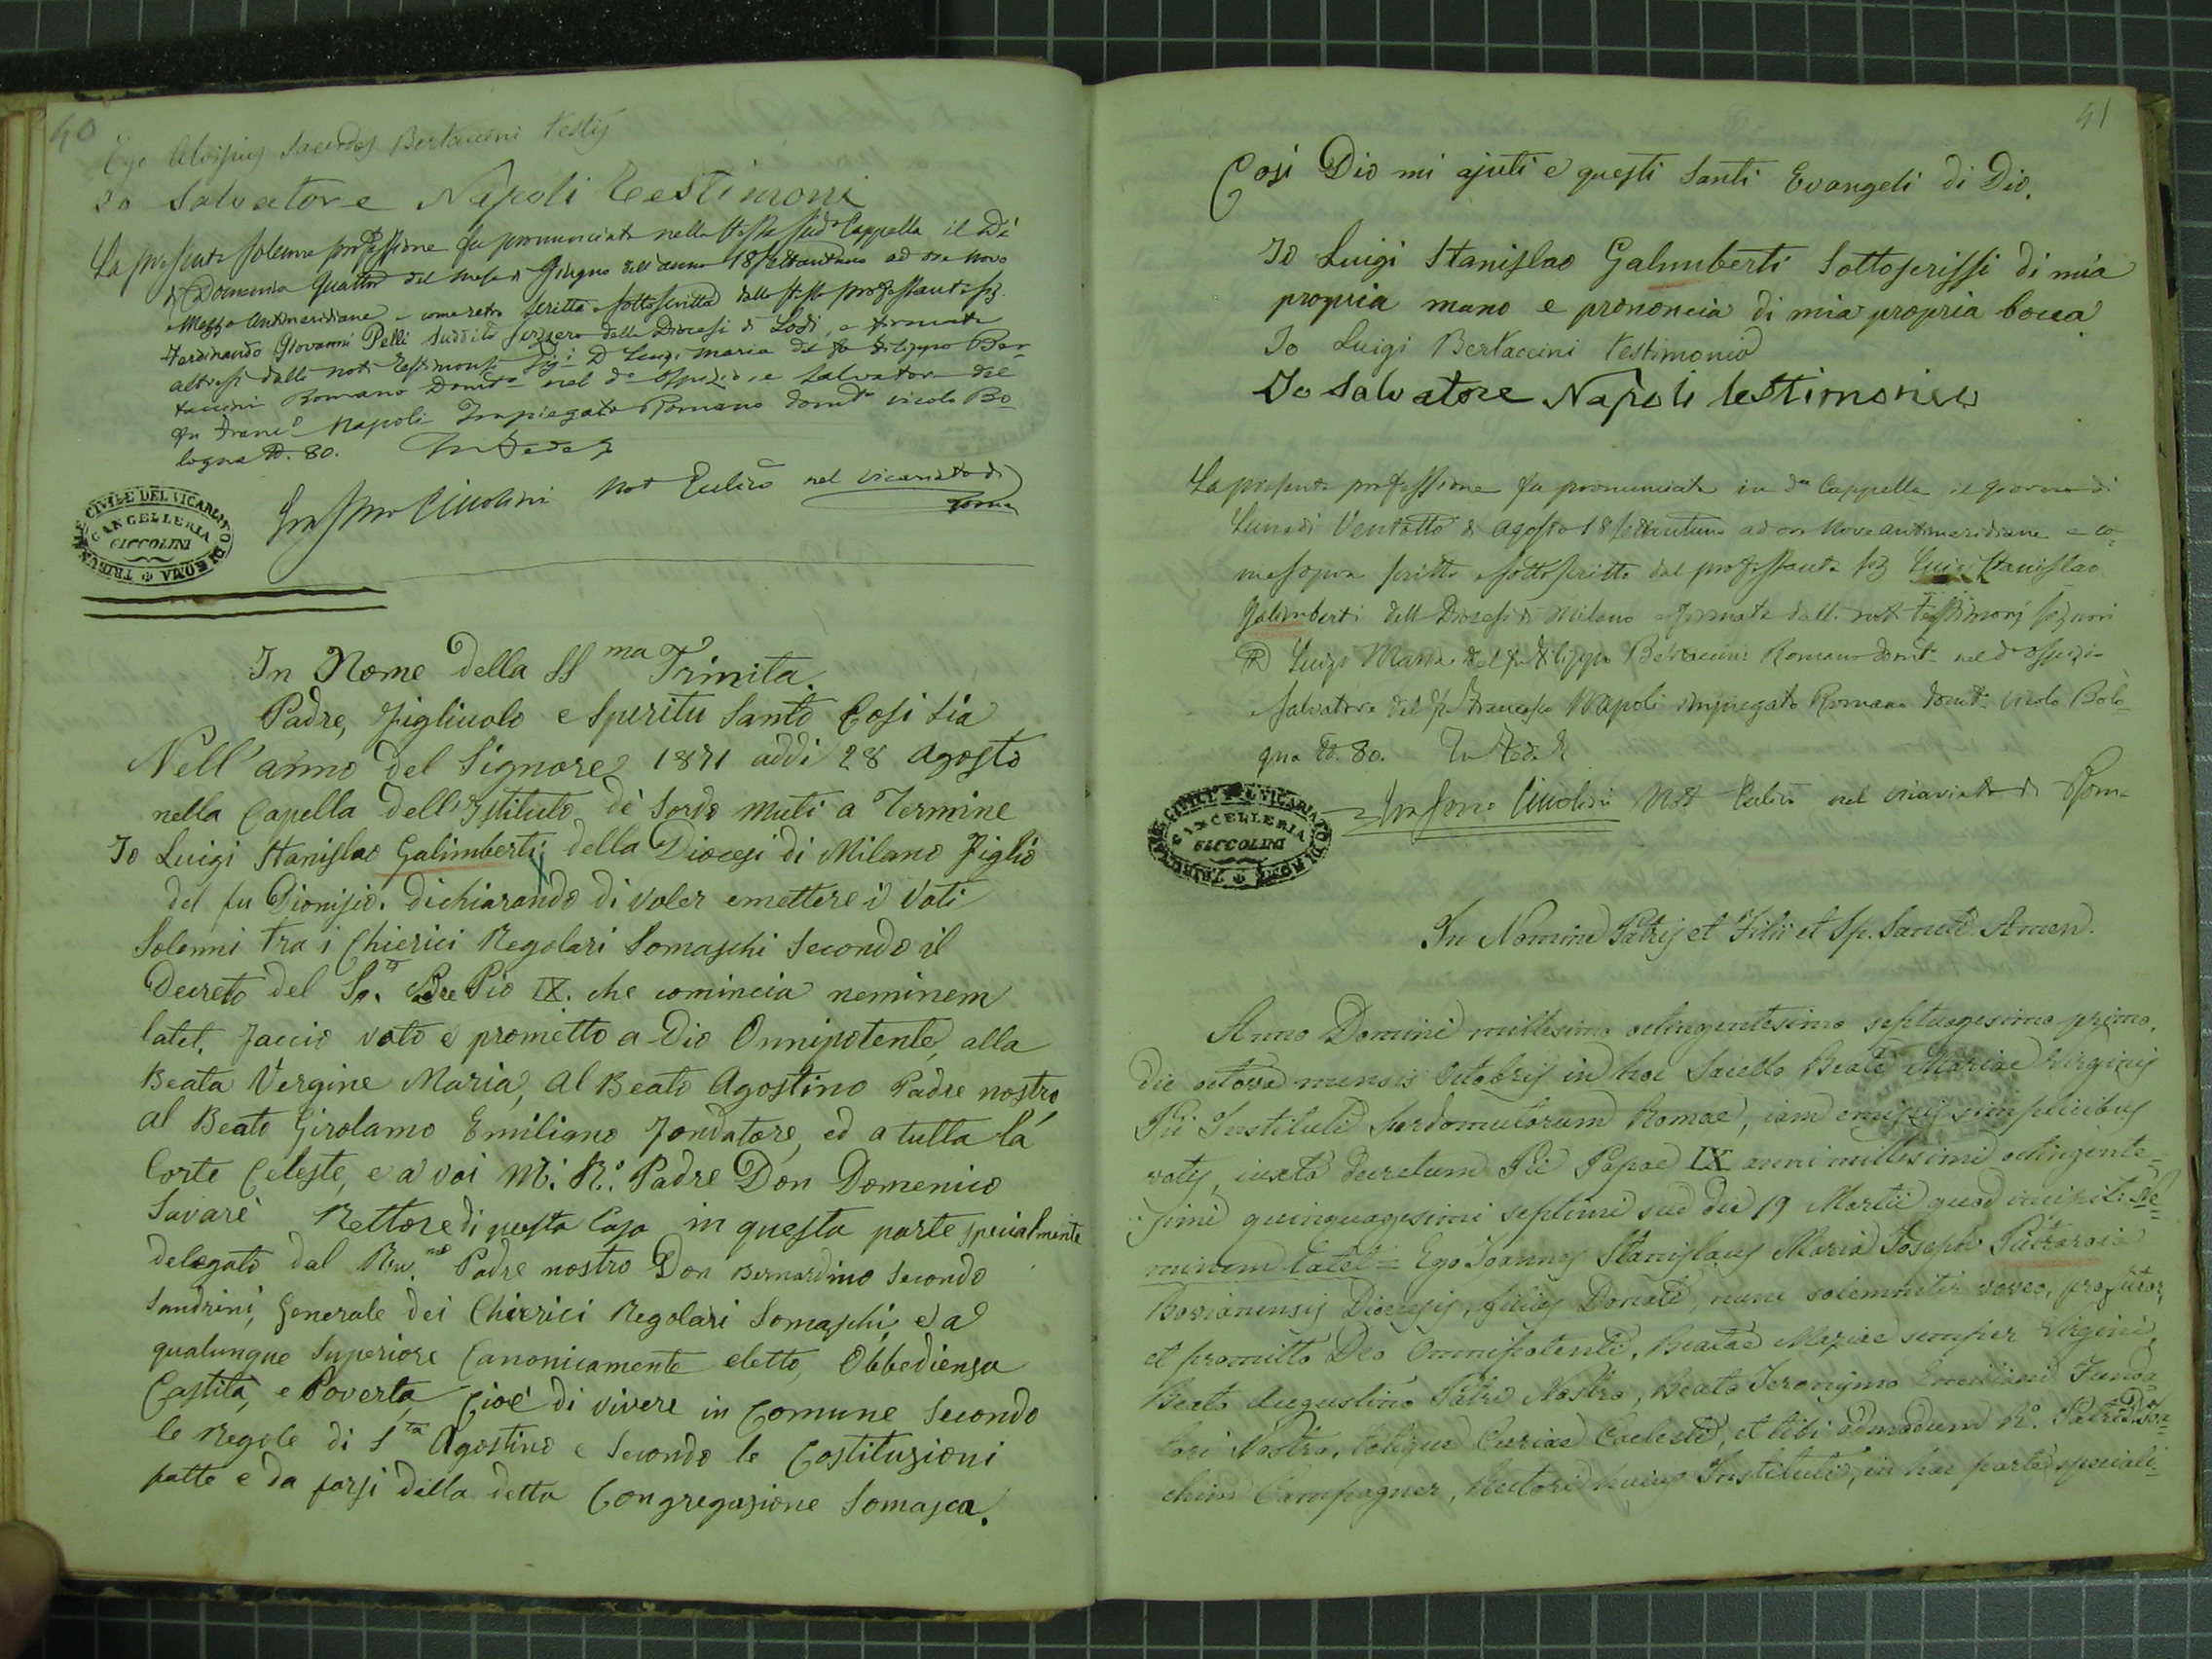 40
Ego Aloisius Sacerdos Bertaccini testis
Io Salvatore Napoli Testimoni
La presente solenne professione fu pronunciata nella stessa sud.a Cappella il Dì
di Domenica Quattro del mese di Giugno dell'anno 18settantuno ad ore nove
e Mezzo Antimeridiane e come retro scritta e sottoscritta dallo stesso professante fr.
Ferdinando Giovanni Pelli suddito svizzero della Diocesi di Lodi, e firmata
altresì dalli noti Testimonj Sig.i D. Luigi Maria del fu Filippo Ber-
taccini Romano Domto nel do Ospizio, e Salvatore del
fu Franco Napoli Impiegato Romano domto vicolo Bo-
logna N. 80. In Fede &
Ciccolini Not Pubco nel Vicariato di
Roma
TRIBUNALE CIVILE DEL VICARIATO DI ROMA
CANCELLERIA
CICCOLINI
In Nome della SSma Trinita.
Padre, Figliuolo e Speritu Santo Cosi sia
Nell' anno del Signore 1871 addi 28 Agosto
nella Capella dell'Istituto de' Sordo muti a Termine
Io Luigi Stanislao Galimberti della Diocesi di Milano Figlio
del fu Dionisio. dichiarando di voler emettere i Voti
Solenni tra i Chierici Regolari Somaschi secondo il
Decreto del So. Pdre Pio IX. che comincia neminem
latet. Faccio voto e prometto a Dio Onnipotente, alla
Beata Vergine Maria, al Beato Agostino Padre nostro,
al Beato Girolamo Emiliano Fondatore, ed a tutta la
Corte Celeste, e a voi M. R. Padre Don Domenico
Savarè Rettore di questa Casa in questa parte specialmente
delegato dal Rev.mo Padre nostro Don Bernardino Secondo
Sandrini, Generale dei Chierici Regolari Somaschi, e a
qualunque Superiore Canonicamente eletto, Obbedienza
Castità, e Poverta, Cioè di vivere in Comune Secondo
le Regole di S.to Agostino e Secondo le Costituzioni
fatte e da farsi della detta Congregazione Somasca.
41
Così Dio mi ajuti e questi Santi Evangeli di Dio.
Io Luigi Stanislao Galimberti Sottoscrissi di mia
propria mano e prononcia di mia propria bocca
Io Luigi Bertaccini testimonio
Io Salvatore Napoli testimonio
La presente professione fu pronunciata in da Cappella il giorno di
Lunedì Ventotto di Agosto 18settantuno ad ore Nove antimeridiane e co-
me sopra scritta e sottoscritta dal professante fr Luigi Stanislao
Galimberti della Diocesi di Milano e firmata dalli noti Testimonj signori
D Luigi Maria del fu Filippo Bertaccini Romano domto nel do Ospizio
Salvatore del fu Francesco Napoli impiegato Romano domto vicolo Bolo-
gna N. 80. In Fede &
Ciccolini Not Pubco nel Vicariato di Roma
TRIBUNALE CIVILE DEL VICARIATO DI ROMA
CANCELLERIA
CICCOLINI
In Nomine Patris et Filii et Sp. Sancti Amen.
Anno Domini millesimo octingentesimo septuagesimo primo,
die octava mensis Octobris in hoc Sacello Beatæ Mariae Virginis
Pii Instituti Surdomutorum Romae, iam emissis simplicibus
votis, iuxta decretum Pii Papae IX anni millesimi octingente-
simi quinquagesimi septimi sub die 19 Martii quod incipit: Ne-
minem latet = Ego Joannes Stanislaus Maria Joseph Pietraroia
Bovianensis Dioecesis, filius Donati, nunc solemniter voveo, profiteor,
et promitto Deo Omnipotenti, Beatae Mariae semper Virgini,
Beato Augustino Patri Nostro, Beato Jeronymo Emiliani Funda-
tori Nostro, totique Curiae Caelesti, et tibi admodum R.o Patri D. Joa-
chim Campagner, Rectori huius Instituti, in hac parte speciali-